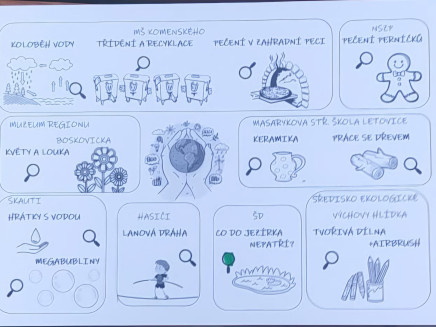 MŠ KOMENSKÉHO
KOLOBĚH VODY
TŘÍDĚNÍ A RECYKLACE
PEČENÍ V ZAHRADNÍ PECI
PEČENÍ PERNÍČKŮ
MUZEUM REGIONU
BOSKOVICKA
KVĚTY A LOUKA
MASARYKOVA STŘ. ŠKOLA LETOVICE
KERAMIKA
PRÁCE SE DŘEVEM
SKAUTI
HRÁTKY S VODOU
MEGABUBLINY
HASIČI
LANOVÁ DRÁHA
ŠD
CO DO JEZÍRKA
NEPATŘÍ?
STŘEDISKO EKOLOGICKÉ
VÝCHOVY HLÍDKA
TVOŘIVÁ DÍLNA
+AIRBRUSH